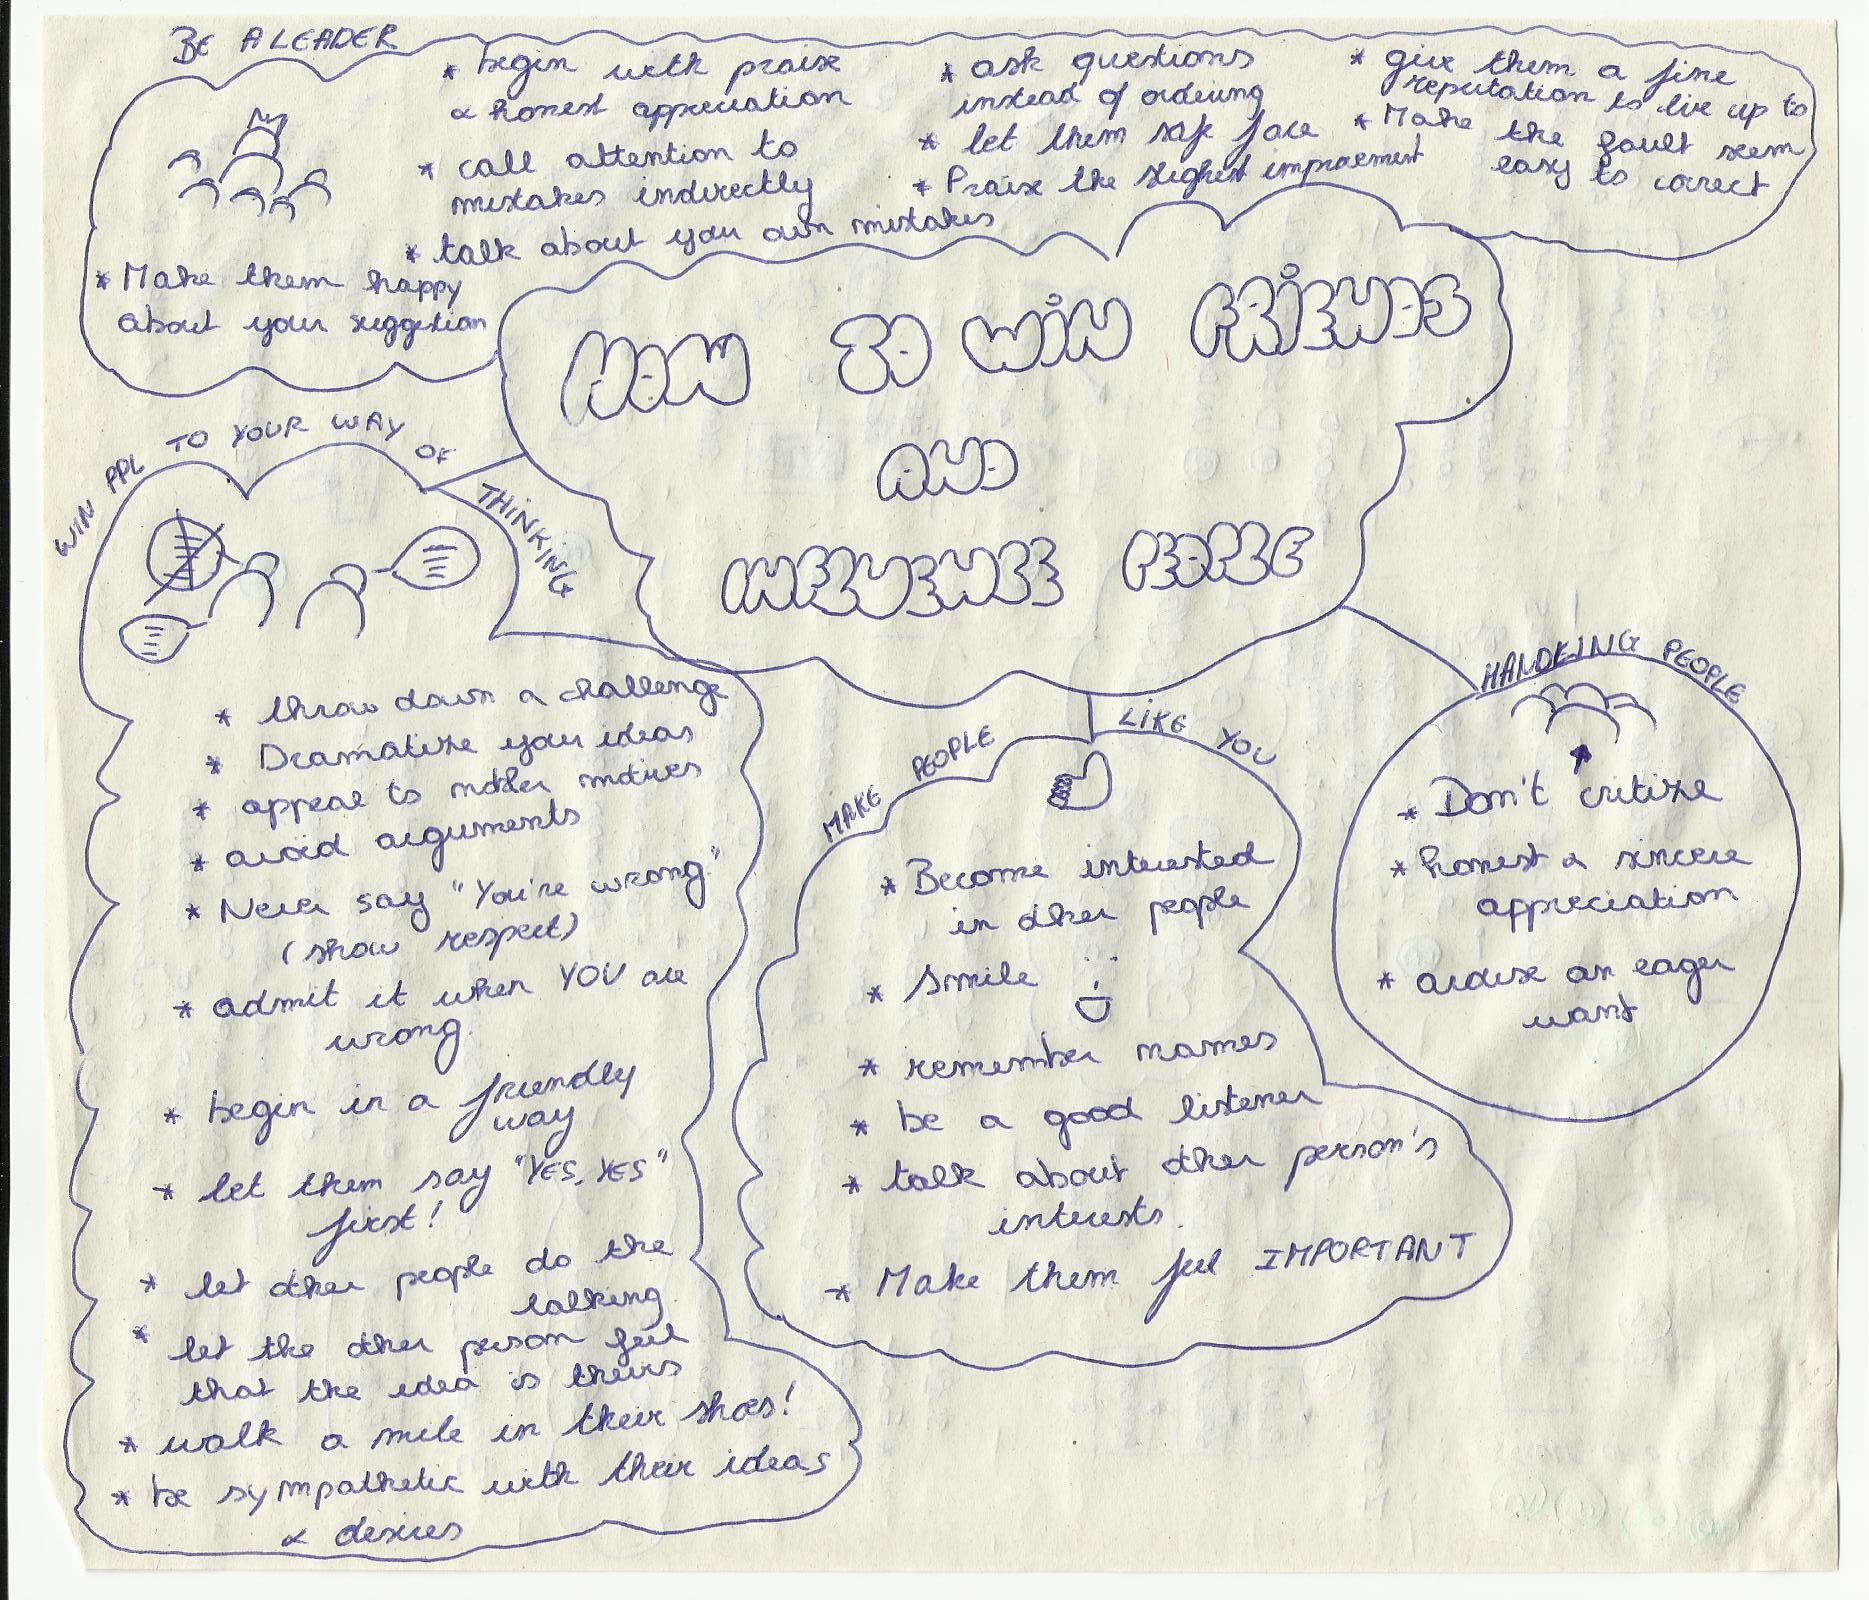 BE A LEADER
* begin with praise
& honest appreciation
* call attention to
mistakes indirectly
* talk about you own mistakes
* Make them happy
about your suggestion
* ask questions
instead of ordering
* let them safe face
* Praise the slighest improvement
* give them a fine
reputation to live up to
* Make the fault seem
easy to correct
HOW TO WIN FRIENDS
AND
INFLUENCE PEOPLE
WIN PPL TO YOUR WAY OF THINKING
* throw down a challenge
* Dramatize your ideas
* appeal to nobler motives
* avoid arguments
* Never say "You're wrong."
(show respect)
* admit it when YOU are
wrong.
* begin in a friendly
way
* let them say "YES, YES"
first!
* let other people do the
talking.
* let the other person feel
that the idea is theirs
* walk a mile in their shoes!
* be sympathetic with their ideas
& desires
MAKE PEOPLE LIKE YOU
* Become interested
in other people
* Smile
* remember names
* be a good listener
* talk about other person's
interests.
* Make them feel IMPORTANT
HANDLING PEOPLE
* Don't critize
* honest & sincere
appreciation
* arouse an eager
want